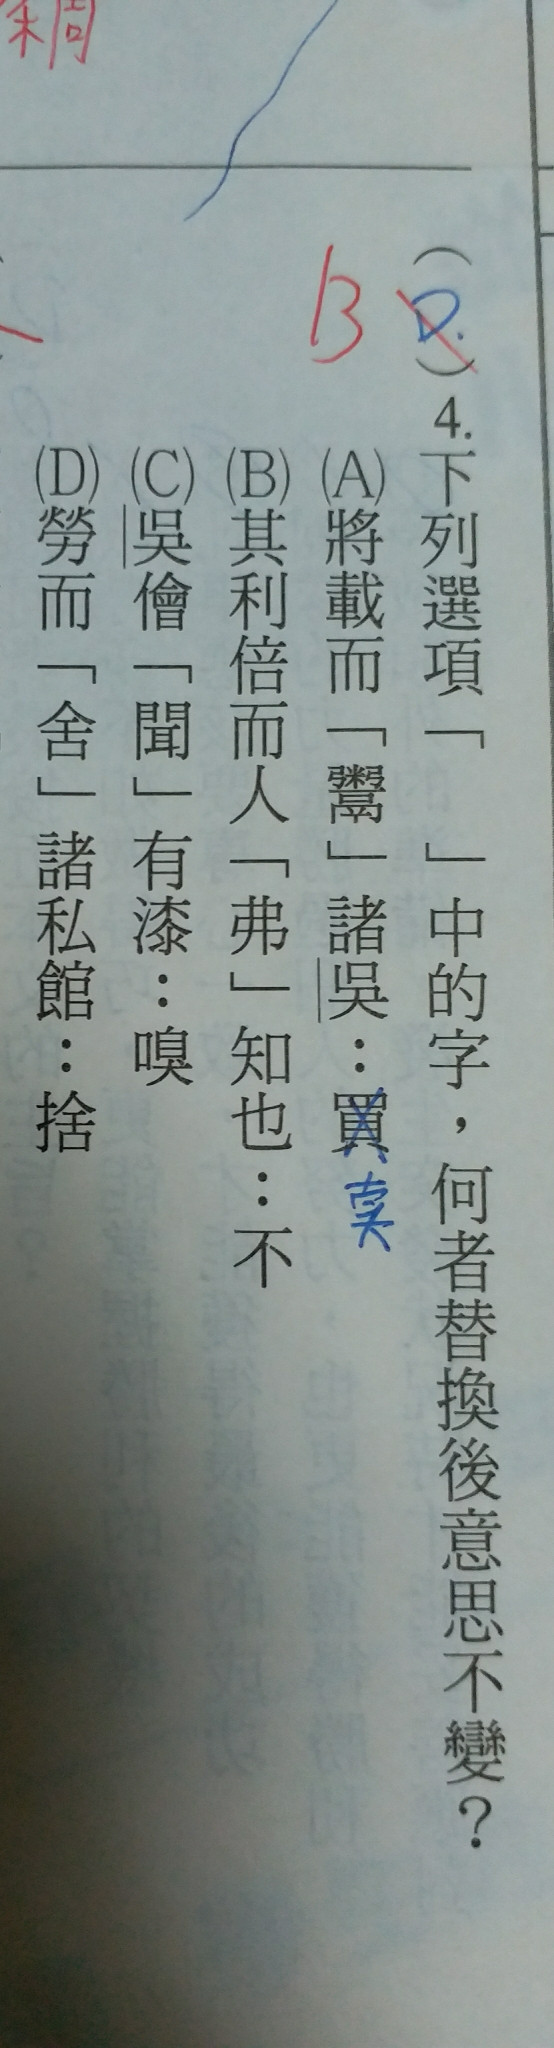 稠
(D.)4.下列選項「　」中的字，何者替換後意思不變？
B
(A)將載而「鬻」諸吳：買 卖
(B)其利倍而人「弗」知也：不
(C)吳儈「聞」有漆：嗅
(D)勞而「舍」諸私館：捨